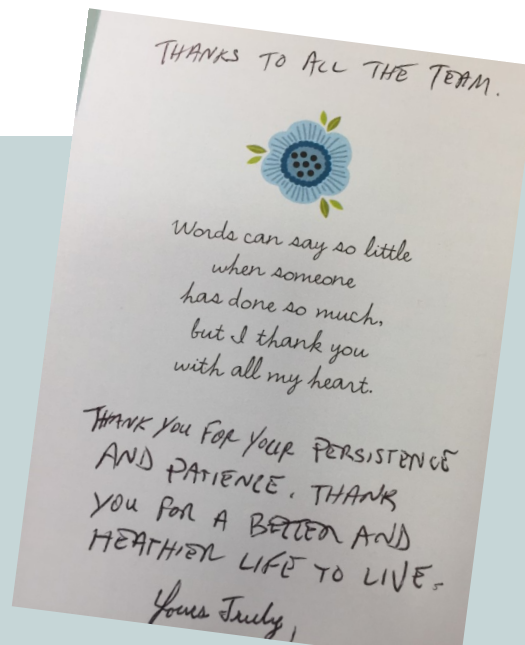 THANKS TO ALL THE TEAM.
Words can say so little
when someone
has done so much,
but I thank you
with all my heart.
THANK YOU FOR YOUR PERSISTENCE
AND PATIENCE. THANK
YOU FOR A BETTER AND
HEATHIER LIFE TO LIVE.
Yours Truly,